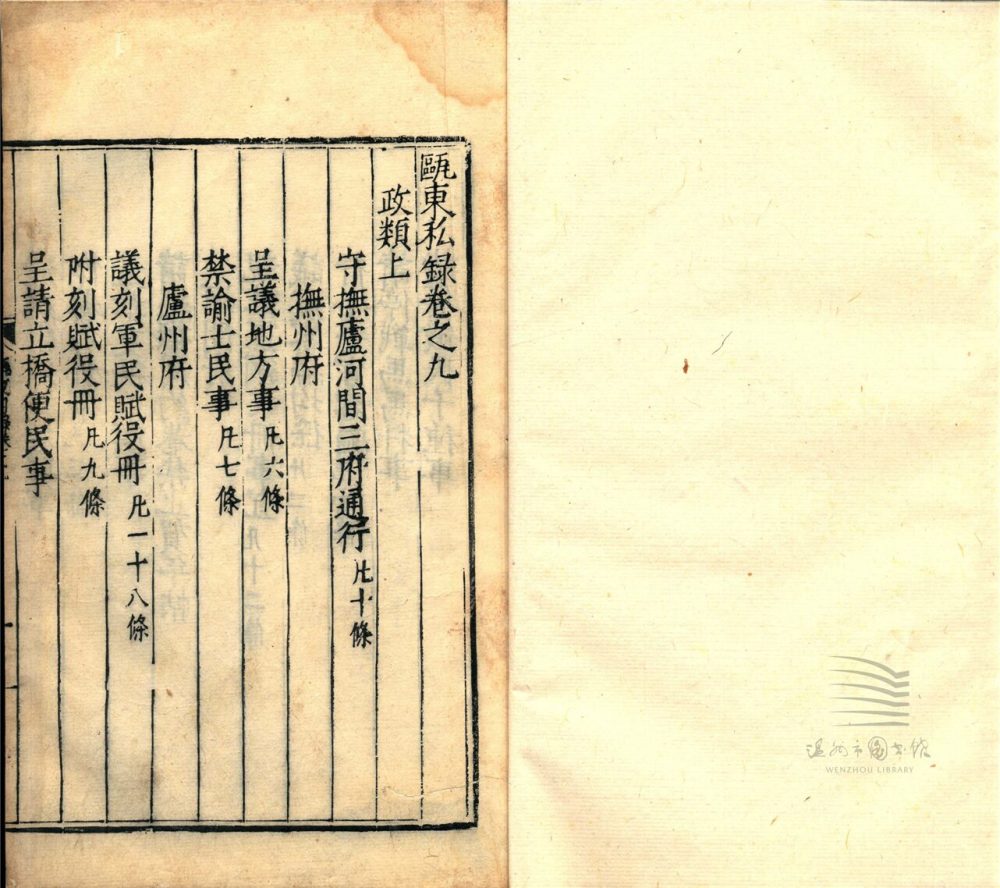 甌東私録卷之九
政類上
守撫廬河間三府通行 凡十條
撫州府
呈議地方事 凡六條
禁諭士民事 凡七條
廬州府
議刻軍民賦役冊 凡一十八條
附刻賦役冊 凡九條
呈請立橋便民事
温州市图书馆
WENZHOU LIBRARY